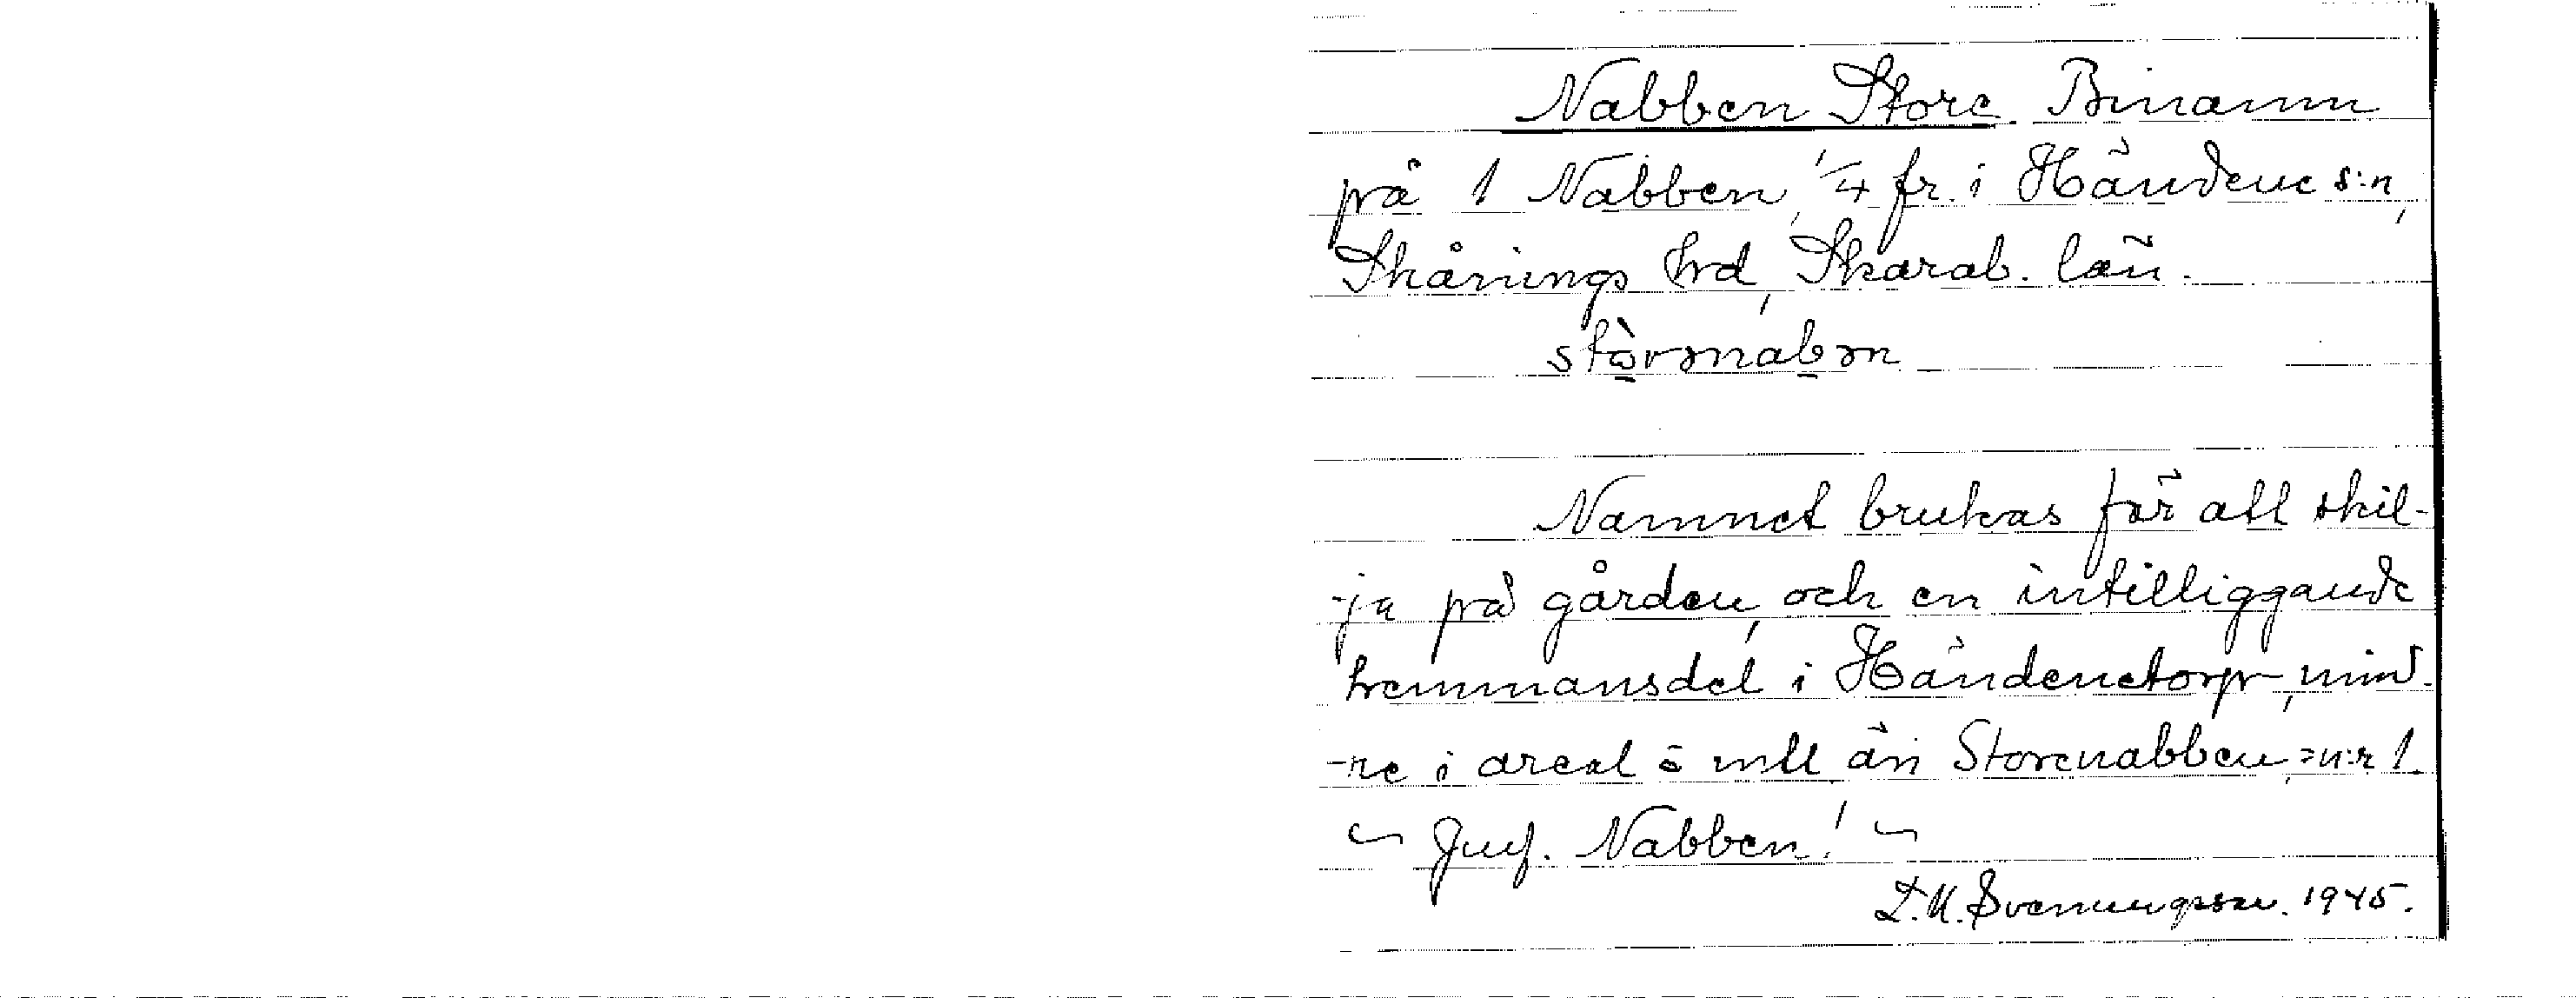 Nabben Store. Binamn
på 1 Nabben, 1/4 fr. i Händene s:n,
Skånings hrd, Skarab. län.
Namnet brukas för att skil-
-ja på gården, och en intilliggande
hemmansdel i Händenetorp, mind-
-re i areal än Storenabben, =n:r 1.
Jmf. Nabben!
Svenungsson. 1945.